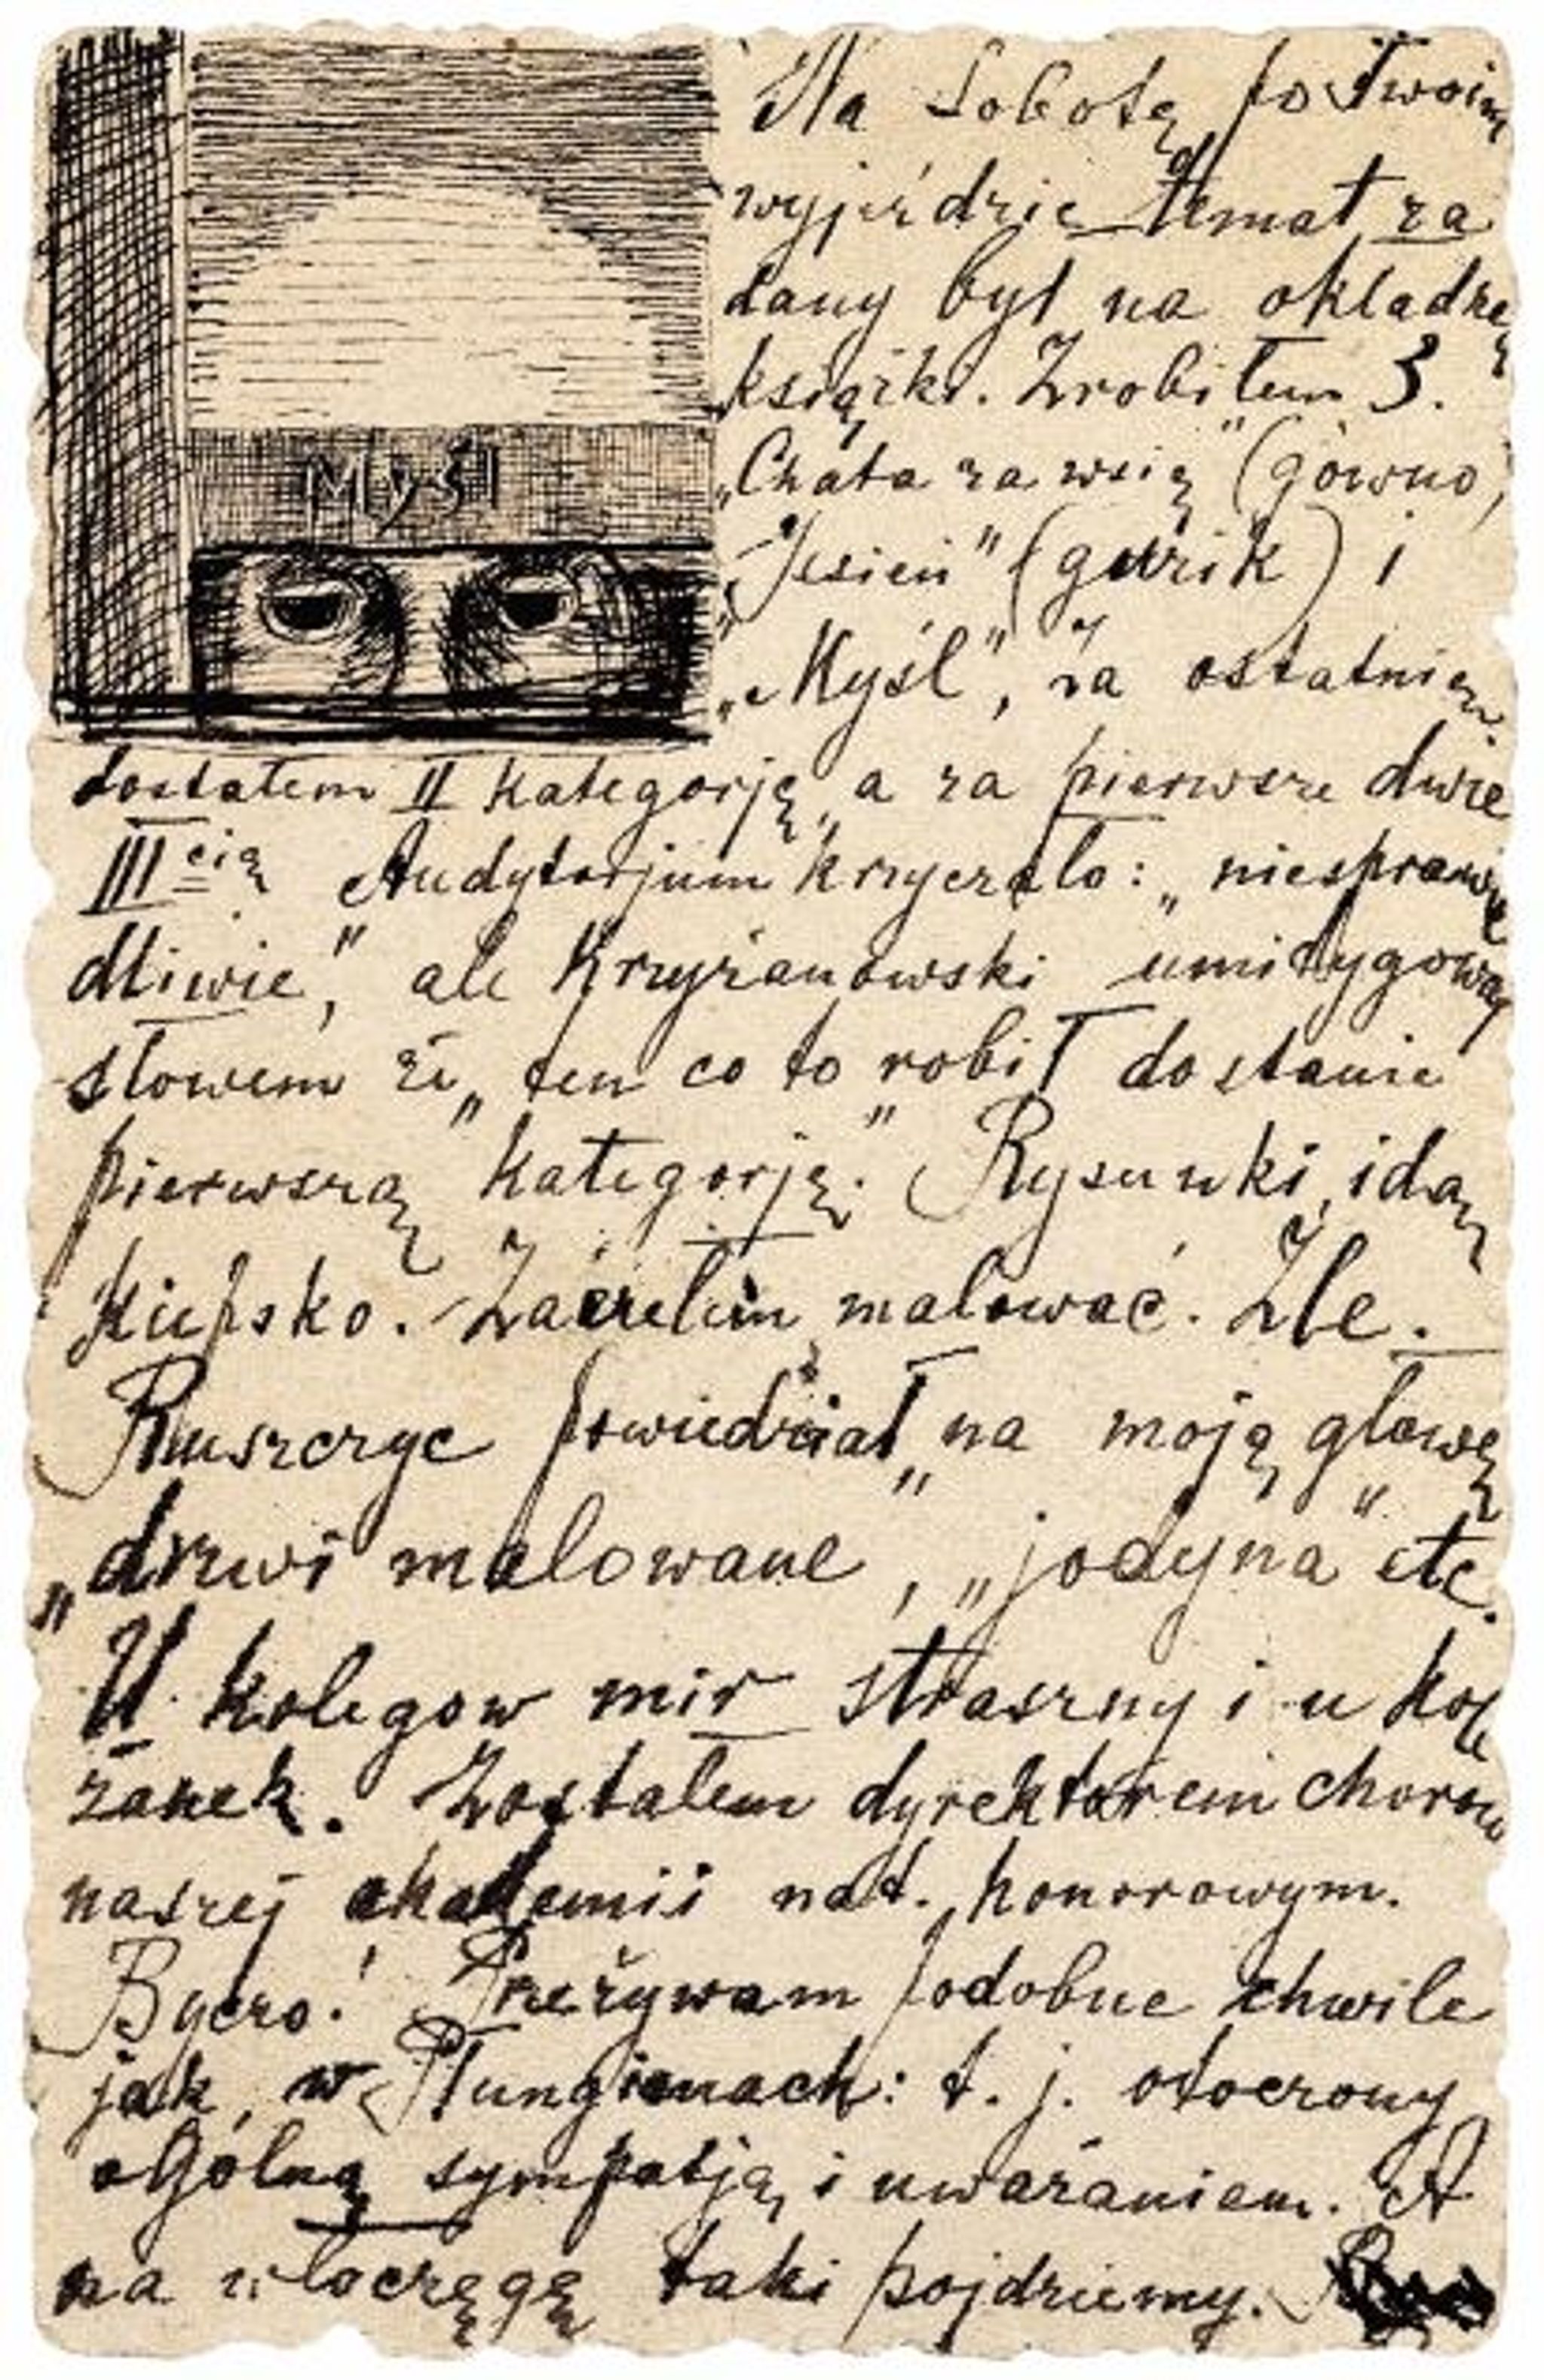 Myśl
Na Sobotę po Twoim
wyjeździe temat za
dany był na okladkę
książki. Zrobiłem 3.
„Chata za wsią" (gówno)
„Jesień" (guzik) i
„Myśl", za ostatnią
dostałem II kategorję, a za pierwsze dwie
III cią Audytorjum krzyczało: „niesprawie
dliwie", ale Krzyżanowski umitygował
słowem że „ten co to robił dostanie
pierwszą kategorję." Rysunki idą
kiepsko. Zacząłem malować. Źle.
Ruszczyc powiedział na moją głowę
„drzwi malowane", „jodyna" etc.
U kolegow mir straszny i u kole
żanek. Zostałem dyrektorem chorow
naszej akademii nat. honorowym.
Byczo! Przeżywam podobne chwile
jak w Płungianach: t. j. otoczony
ogólną sympatją i uważaniem. A
na włoczęgę taki pojdziemy.